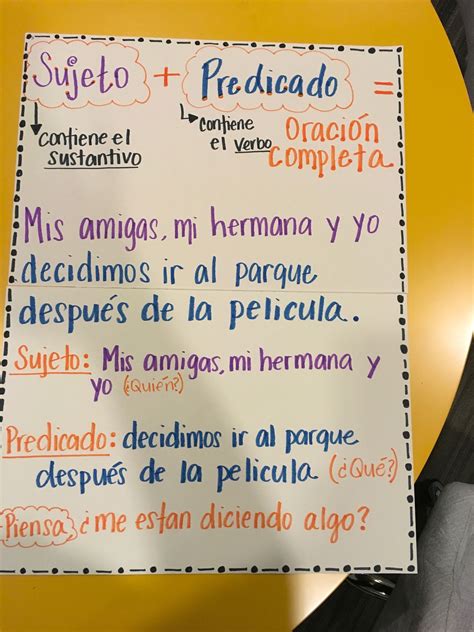 Sujeto + Predicado =
Contiene el sustantivo
Contiene el verbo
Oración completa
Mis amigas, mi hermana y yo
decidimos ir al parque
después de la pelicula.
Sujeto: Mis amigas, mi hermana y
yo (¿Quién?)
Predicado: decidimos ir al parque
después de la pelicula (¿Qué?)
Piensa ¿me estan diciendo algo?